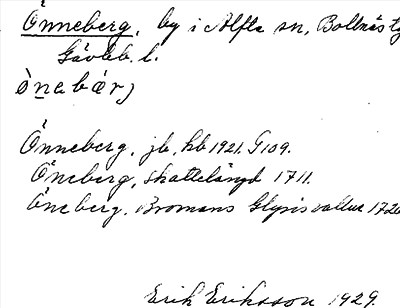 Önneberg, by i Alfta sn, Bollnäs tg
Gävleb. l.
ònebár,
Önneberg, jb, hb 1921. G 109.
Öneberg, skattelängd 1711.
Öneberg. Bromans Glysisvallur 1726
Erik Eriksson 1929.